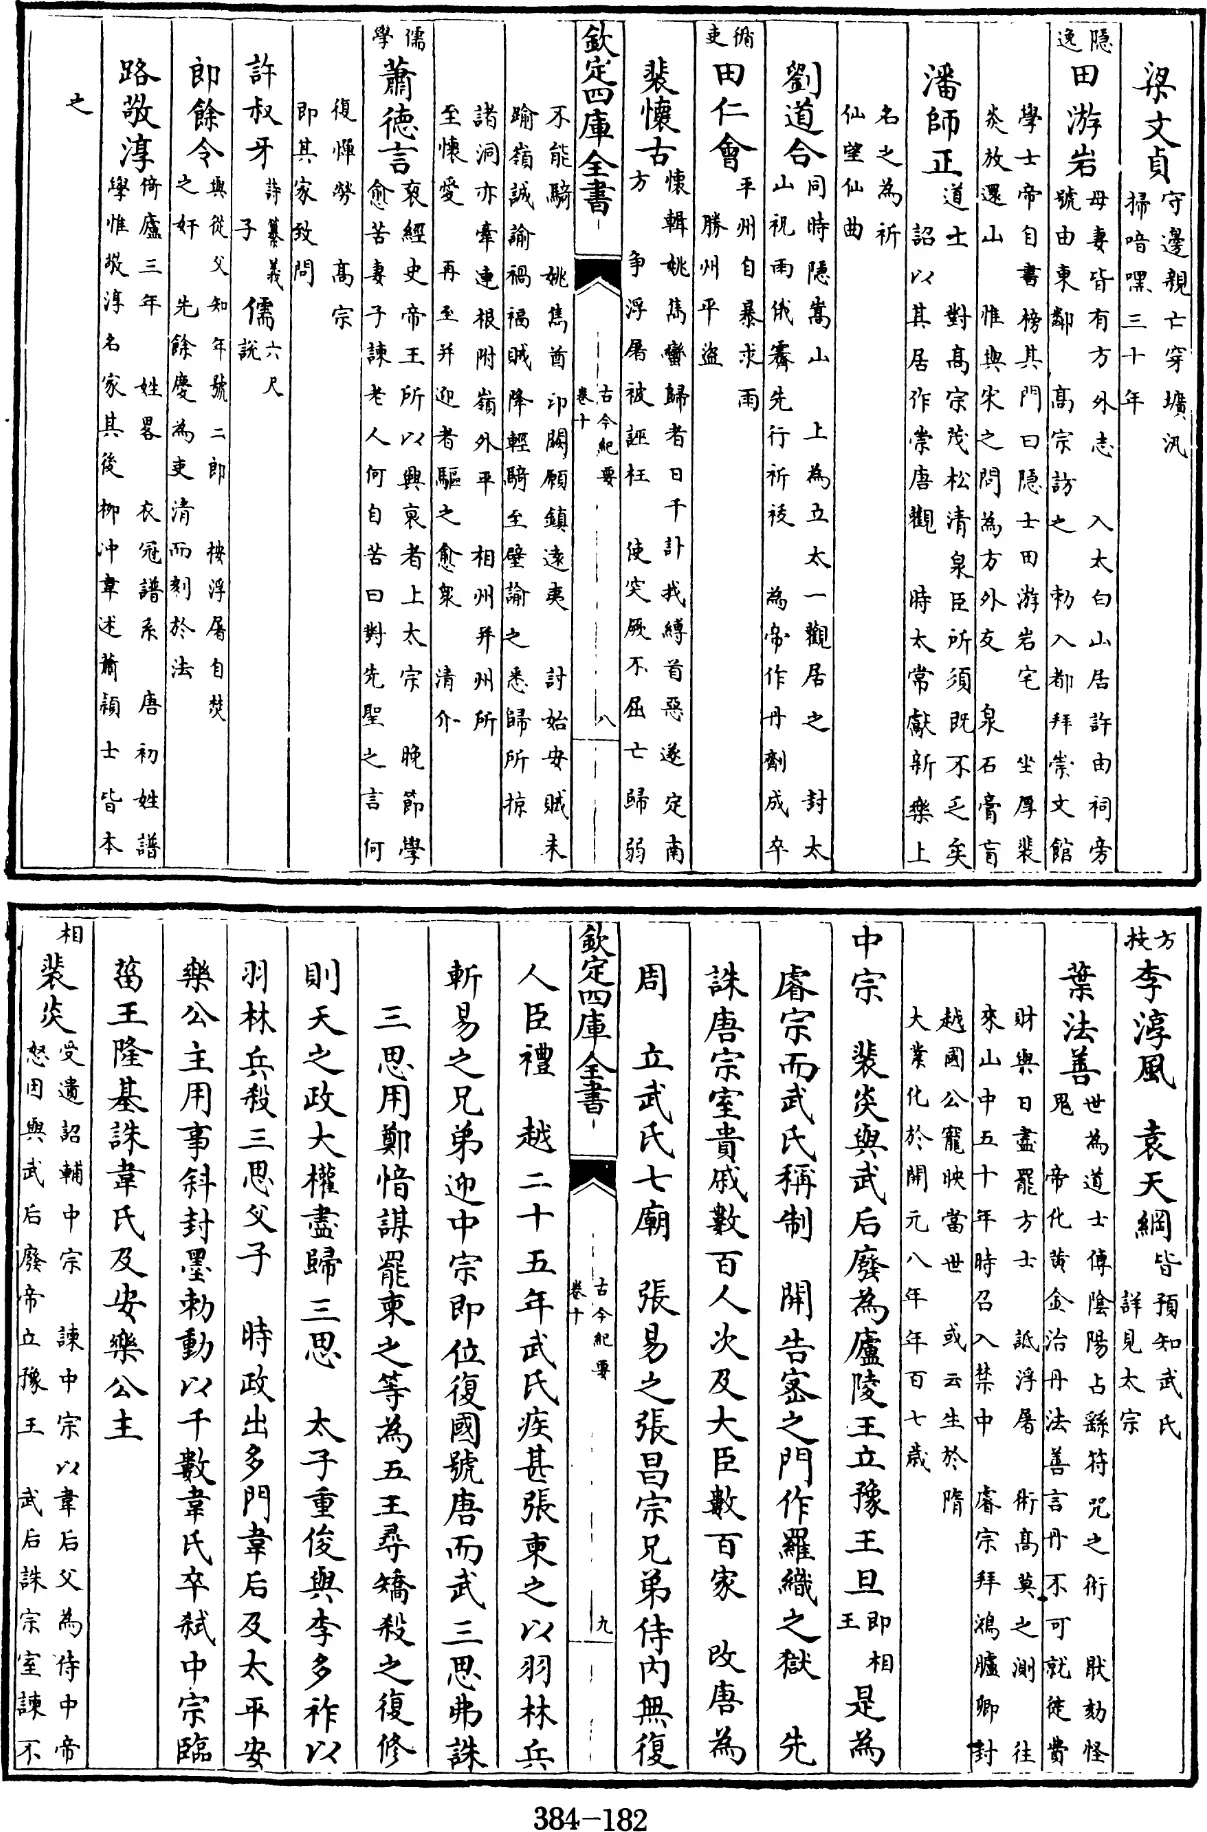 梁文貞守邊親亡穿壙汛
掃喑嘿三十年
隱逸
田游岩母妻皆有方外志 入太白山居許由祠旁
號由東鄰 高宗訪之 勅入都拜崇文館
學士帝自書榜其門曰隱士田游岩宅 坐厚裴
炎放還山 惟與宋之問為方外友 泉石膏肓
潘師正道士 對髙宗茂松清泉臣所須既不乏矣
詔以其居作崇唐觀 時太常獻新樂上
名之為祈
仙望仙曲
劉道合同時隱嵩山 上為立太一觀居之 封太
山祝雨俄霽先行祈祓 為帝作丹劑成卒
循吏
田仁會平州自暴求雨
勝州平盜
裴懷古懷輯姚雟蠻歸者日千計我縛首惡遂定南
方 爭浮屠被誣枉 使突厥不屈亡歸弱
欽定四庫全書
古今紀要
卷十
八
不能騎 姚雟酋叩闕願鎮逺夷 討始安賊未
踰嶺誠諭禍福賊降輕騎至壁諭之悉歸所掠
諸洞亦牽連根附嶺外平 相州并州所
至懷愛 再至并迎者驅之愈衆 清介
儒學
蕭德言裒經史帝王所以興衰者上太宗 晚節學
愈苦妻子諫老人何自苦曰對先聖之言何
復憚勞 髙宗
即其家致問
許叔牙詩纂義 儒六尺
子 說
郎餘令與從父知年號二郎 按浮屠自焚
之奸 先餘慶為吏清而刻於法
路敬淳倚廬三年 姓畧 衣冠譜系 唐初姓譜
學惟敬淳名家其後栁冲韋述蕭頴士皆本
之
方技
李淳風 袁天綱皆預知武氏
詳見太宗
葉法善世為道士傳陰陽占繇符咒之術 厭劾怪
鬼 帝化黄金治丹法善言丹不可就徒費
財與日盡罷方士 詆浮屠 術髙莫之測 往
來山中五十年時召入禁中 睿宗拜鴻臚卿封
越國公寵映當世 或云生於隋
大業化於開元八年年百七歲
中宗 裴炎與武后廢為廬陵王立豫王旦即相王是為
睿宗而武氏稱制 開告密之門作羅織之獄 先
誅唐宗室貴戚數百人次及大臣數百家 改唐為
周 立武氏七廟 張易之張昌宗兄弟侍内無復
欽定四庫全書
古今紀要
卷十
九
人臣禮 越二十五年武氏疾甚張柬之以羽林兵
斬易之兄弟迎中宗即位復國號唐而武三思弗誅
三思用鄭愔謀罷柬之等為五王尋矯殺之復修
則天之政大權盡歸三思 太子重俊與李多祚以
羽林兵殺三思父子 時政出多門韋后及太平安
樂公主用事斜封墨勅動以千數韋氏卒弑中宗臨
菑王隆基誅韋氏及安樂公主
相
裴炎受遺詔輔中宗 諫中宗以韋后父為侍中帝
怒因與武后廢帝立豫王 武后誅宗室諫不
384-182